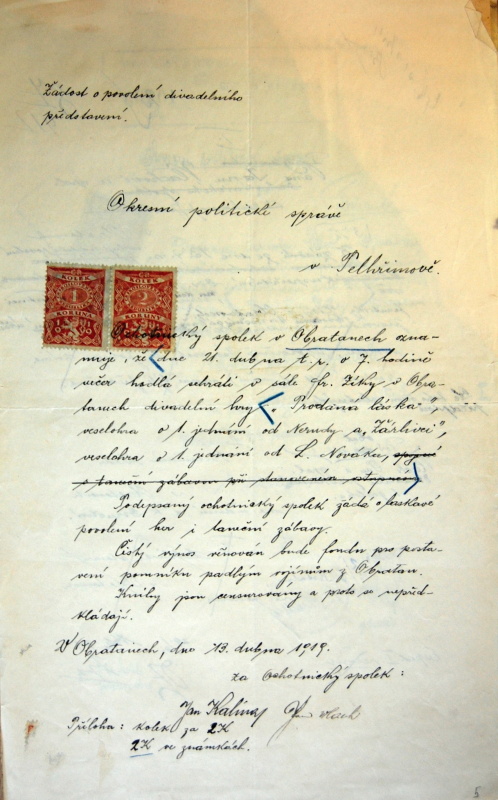 Žádost o povolení divadelního
představení.
Okresní politické správě
v Pelhřimově.
ČR
KOLEK
1
KORUNA
ČR
KOLEK
2
KORUNY
Ochotnický spolek v Obratanech ozna-
muje, že dne 21. dubna t. r. o 7. hodině
večer hodlá sehráti v sále fr. Zíky v Obra-
tanech divadelní hry „Prodaná láska",
veselohra o 1. jednání od Nerudy a „Žárlivci",
veselohra o 1. jednání od L. Nováka, spojené
s taneční zábavou při stanoveném vstupném.
Podepsaný ochotnický spolek žádá o laskavé
povolení her i taneční zábavy.
Čistý výnos věnován bude fondu pro posta-
vení pomníku padlým vojínům z Obratan.
Knihy jsou censurovány a proto se nepřed-
kládají.
V Obratanech, dne 13. dubna 1919.
za Ochotnický spolek:
Jan Kalina
Příloha: kolek za 2K
2K ve známkách.
5